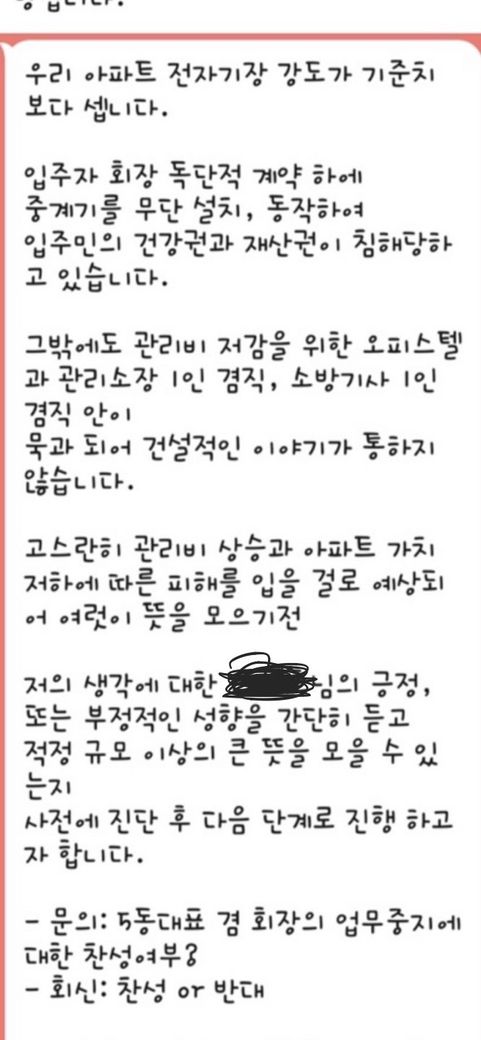 우리 아파트 전자기장 강도가 기준치
보다 셉니다.
입주자 회장 독단적 계약 하에
중계기를 무단 설치, 동작하여
입주민의 건강권과 재산권이 침해당하
고 있습니다.
그밖에도 관리비 저감을 위한 오피스텔
과 관리소장 1인 겸직, 소방기사 1인
겸직 안이
묵과 되어 건설적인 이야기가 통하지
않습니다.
고스란히 관리비 상승과 아파트 가치
저하에 따른 피해를 입을 걸로 예상되
어 여럿이 뜻을 모으기전
저의 생각에 대한 님의 긍정,
또는 부정적인 성향을 간단히 듣고
적정 규모 이상의 큰 뜻을 모을 수 있
는지
사전에 진단 후 다음 단계로 진행 하고
자 합니다.
- 문의: 5동대표 겸 회장의 업무중지에
대한 찬성여부?
- 회신: 찬성 or 반대